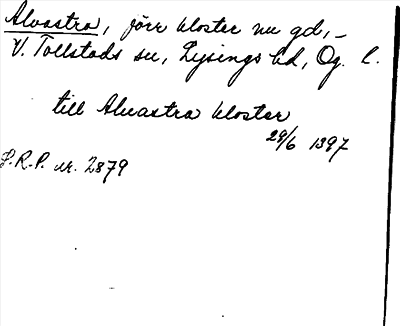 Alvastra, förr kloster nu gd,-
V. Tollstads sn, Lysings hd, Ög. l.
till Alvastra kloster
29/6 1397
S.R.P. nr. 2879